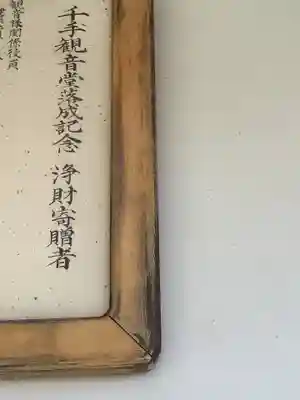 千手観音堂落成記念 浄財寄贈者
観音様関係役員